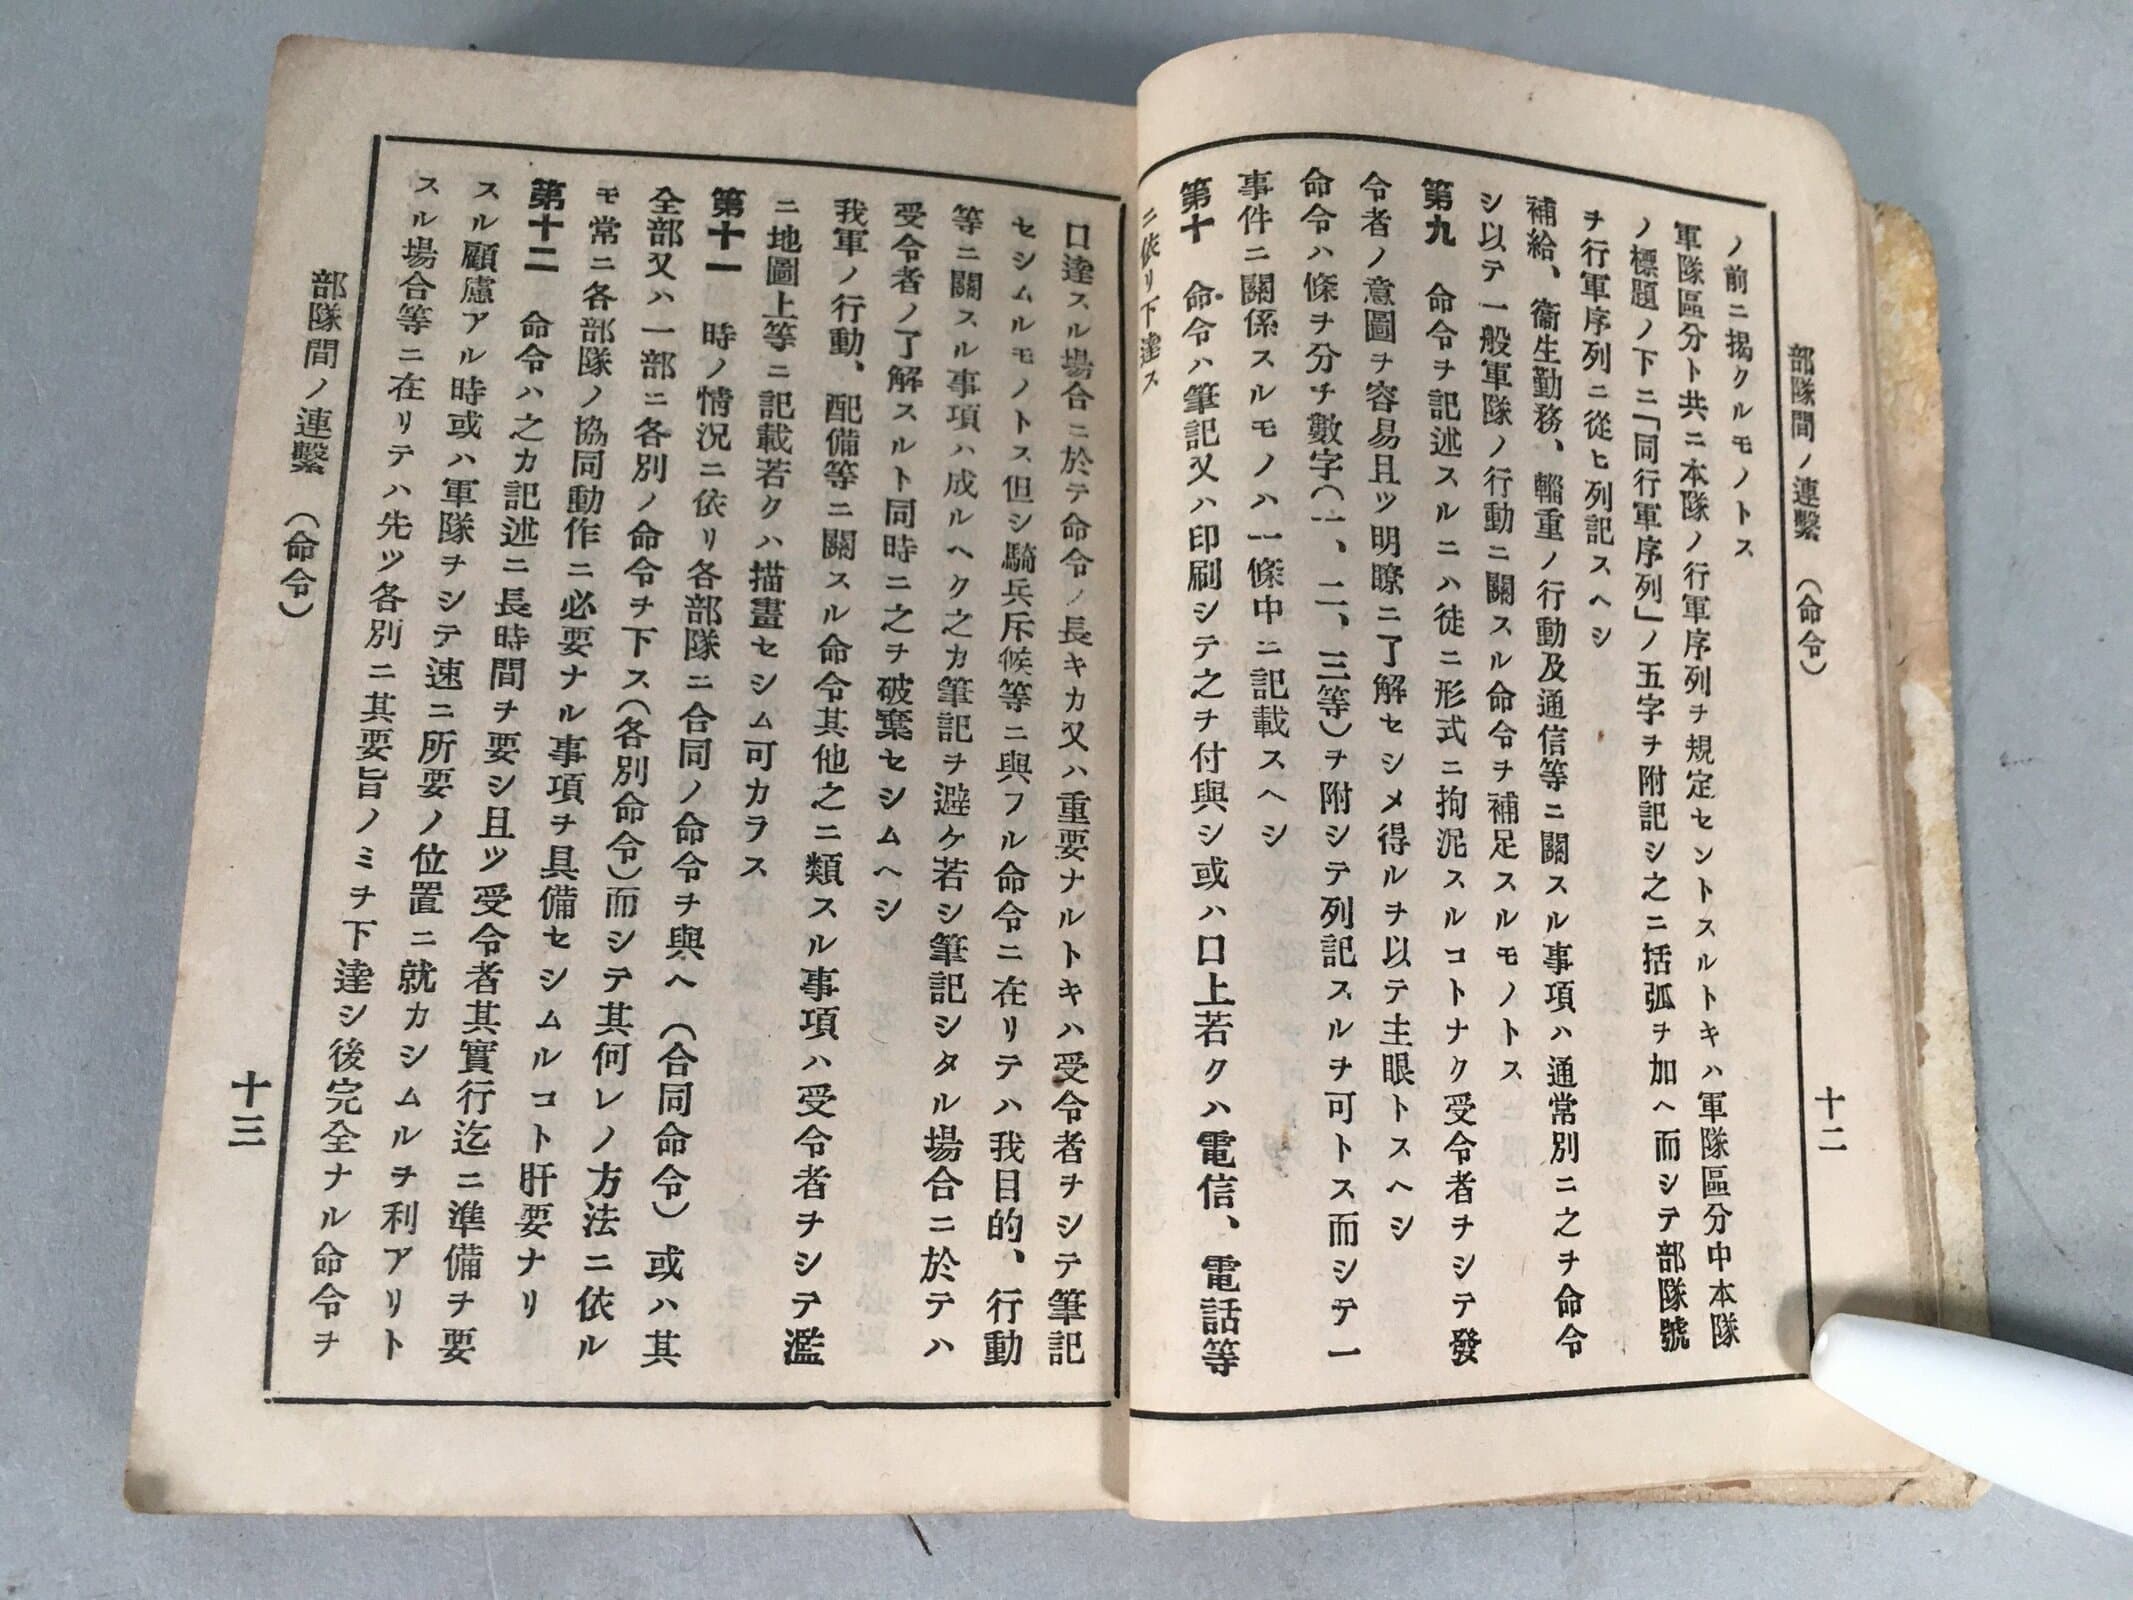 部隊間ノ連繫 (命令)
十二
ノ前ニ揭クルモノトス
軍隊區分ト共ニ本隊ノ行軍序列ヲ規定セントスルトキハ軍隊區分中本隊
ノ標題ノ下ニ「同行軍序列」ノ五字ヲ附記シ之ニ括弧ヲ加ヘ而シテ部隊號
ヲ行軍序列ニ從ヒ列記スヘシ
補給、衞生勤務、輜重ノ行動及通信等ニ關スル事項ハ通常別ニ之ヲ命令
シ以テ一般軍隊ノ行動ニ關スル命令ヲ補足スルモノトス
第九 命令ヲ記述スルニハ徒ニ形式ニ拘泥スルコトナク受令者ヲシテ發
令者ノ意圖ヲ容易且ツ明瞭ニ了解セシメ得ルヲ以テ主眼トスヘシ
命令ハ條ヲ分チ數字(一、二、三等)ヲ附シテ列記スルヲ可トス而シテ一
事件ニ關係スルモノハ一條中ニ記載スヘシ
第十 命令ハ筆記又ハ印刷シテ之ヲ付與シ或ハ口上若クハ電信、電話等
ニ依リ下達ス
口達スル場合ニ於テ命令ノ長キカ又ハ重要ナルトキハ受令者ヲシテ筆記
セシムルモノトス但シ騎兵斥候等ニ與フル命令ニ在リテハ我目的、行動
等ニ關スル事項ハ成ルヘク之カ筆記ヲ避ケ若シ筆記シタル場合ニ於テハ
受令者ノ了解スルト同時ニ之ヲ破棄セシムヘシ
我軍ノ行動、配備等ニ關スル命令其他之ニ類スル事項ハ受令者ヲシテ濫
ニ地圖上等ニ記載若クハ描畫セシム可カラス
第十一 時ノ情況ニ依リ各部隊ニ合同ノ命令ヲ與ヘ(合同命令)或ハ其
全部又ハ一部ニ各別ノ命令ヲ下ス(各別命令)而シテ其何レノ方法ニ依ル
モ常ニ各部隊ノ協同動作ニ必要ナル事項ヲ具備セシムルコト肝要ナリ
第十二 命令ハ之カ記述ニ長時間ヲ要シ且ツ受令者其實行迄ニ準備ヲ要
スル顧慮アル時或ハ軍隊ヲシテ速ニ所要ノ位置ニ就カシムルヲ利アリト
スル場合等ニ在リテハ先ツ各別ニ其要旨ノミヲ下達シ後完全ナル命令ヲ
部隊間ノ連繫 (命令)
十三